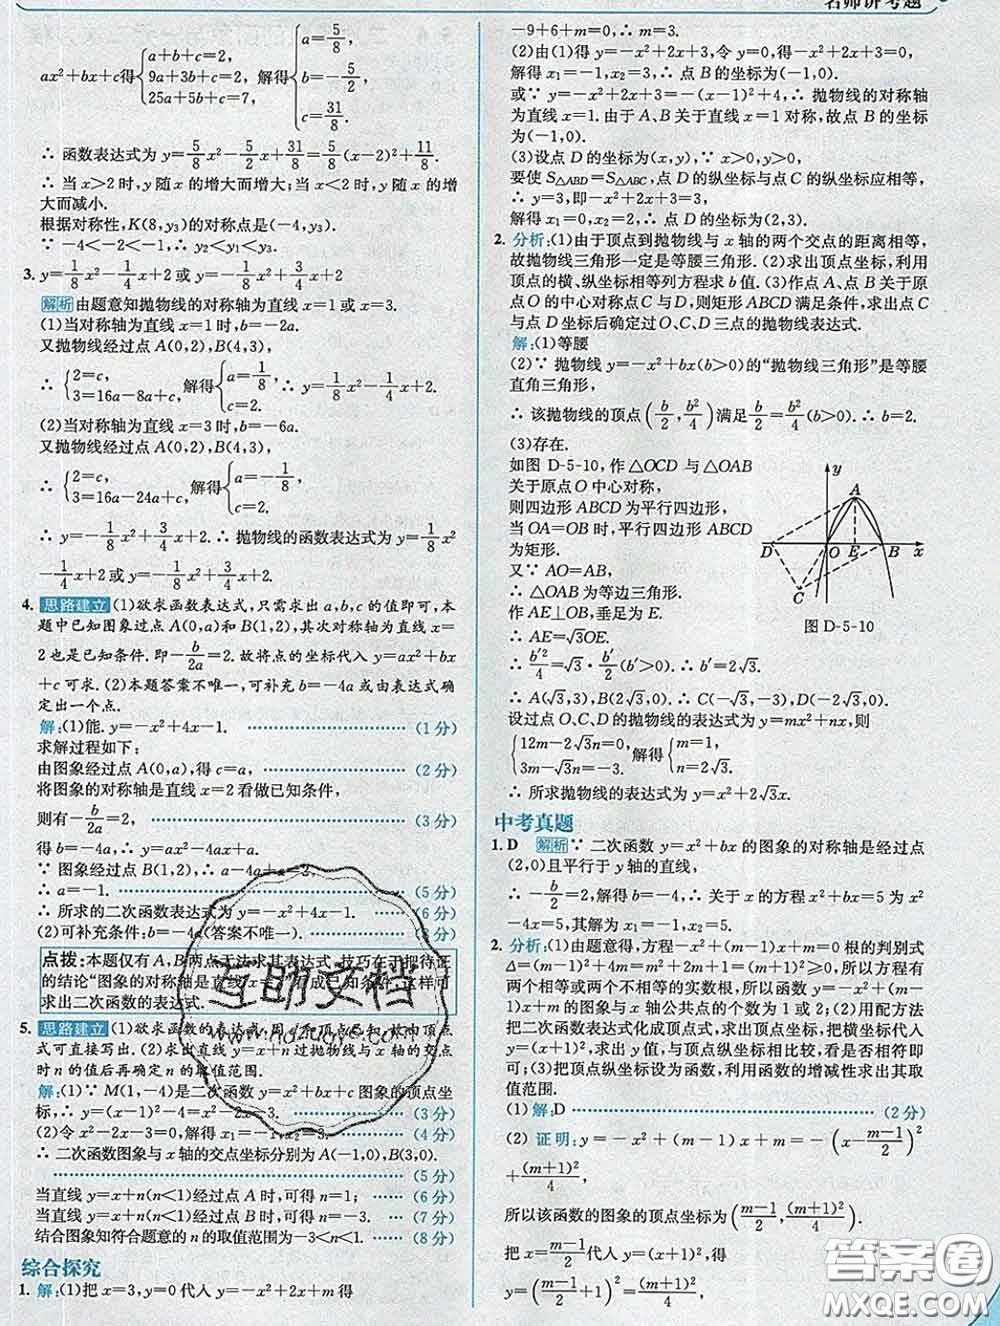 名师讲考题
ax²+bx+c得{4a+2b+c=2, 9a+3b+c=2, 25a+5b+c=7. 解得{a=5/8, b=-5/2, c=31/8.
∴ 函数表达式为 y=5/8x²-5/2x+31/8=5/8(x-2)²+11/8.
∴ 当 x>2 时,y 随 x 的增大而增大;当 x<2 时,y 随 x 的增
大而减小.
根据对称性,K(8,y₃)的对称点是(-4,y₃).
∵ -4<-2<-1,∴ y₂<y₁<y₃.
3. y=1/8x²-1/4x+2 或 y=-1/8x²+3/4x+2
解析 由题意知抛物线的对称轴为直线 x=1 或 x=3.
(1)当对称轴为直线 x=1 时,b=-2a.
又抛物线经过点 A(0,2),B(4,3),
∴ {2=c, 3=16a-8a+c, 解得{a=1/8, c=2. ∴ y=1/8x²-1/4x+2.
(2)当对称轴为直线 x=3 时,b=-6a.
又抛物线经过点 A(0,2),B(4,3),
∴ {2=c, 3=16a-24a+c, 解得{a=-1/8, c=2.
∴ y=-1/8x²+3/4x+2.∴ 抛物线的函数表达式为 y=1/8x²
-1/4x+2 或 y=-1/8x²+3/4x+2.
4. 思路建立 (1)欲求函数表达式,只需求出 a,b,c 的值即可,本
题中已知图象过点 A(0,a)和 B(1,2),其次对称轴为直线 x=
2 也是已知条件.即-b/2a=2.故将点的坐标代入 y=ax²+bx
+c 可求.(2)本题答案不唯一,可补充 b=-4a 或由表达式确
定出一个点.
解:(1)能. y=-x²+4x-1. (1 分)
求解过程如下:
由图象经过点 A(0,a),得 c=a, (2 分)
将图象的对称轴是直线 x=2 看做已知条件,
则有-b/2a=2, (3 分)
得 b=-4a,∴ y=ax²-4ax+a.
∵ 图象经过点 B(1,2),∴ a-4a+a=2.
∴ a=-1. (5 分)
∴ 所求的二次函数表达式为 y=-x²+4x-1. (6 分)
(2)可补充条件:b=-4a(答案不唯一).
点拨:本题仅有 A,B 两点无法求其表达式,技巧在于把待证
的结论“图象的对称轴是直线 x=2”看成已知条件,这样可
求出二次函数的表达式.
5. 思路建立 (1)欲求函数的表达式,因 顶点已知,故由顶点
式可直接写出.(2)求出直线 y=x+n 过抛物线与 x 轴的交点
时 n 的值后再确定 n 的取值范围.
解:(1)∵ M(1,-4)是二次函数 y=x²+bx+c 图象的顶点坐
标,∴ y=(x-1)²-4=x²-2x-3. (3 分)
(2)令 x²-2x-3=0,解得 x₁=-1,x₂=3, (4 分)
∴ 二次函数图象与 x 轴的交点坐标分别为 A(-1,0),B(3,0).
(5 分)
当直线 y=x+n(n<1)经过点 A 时,可得 n=1; (6 分)
当直线 y=x+n(n<1)经过点 B 时,可得 n=-3. (7 分)
结合图象知符合题意的 n 的取值范围为-3<n<1. (8 分)
综合探究
1. 解:(1)把 x=3,y=0 代入 y=-x²+2x+m 得
-9+6+m=0,∴ m=3.
(2)由(1)得 y=-x²+2x+3,令 y=0,得-x²+2x+3=0,
解得 x₁=-1,x₂=3,∴ 点 B 的坐标为(-1,0).
或∵ y=-x²+2x+3=-(x-1)²+4,∴ 抛物线的对称轴
为直线 x=1.由于 A、B 关于直线 x=1 对称,故点 B 的坐标为
(-1,0).
(3)设点 D 的坐标为(x,y),∵ x>0,y>0,
要使 S△ABD=S△ABC,点 D 的纵坐标与点 C 的纵坐标应相等,
∴ y=3,即-x²+2x+3=3,
解得 x₁=0,x₂=2,∴ 点 D 的坐标为(2,3).
2. 分析:(1)由于顶点到抛物线与 x 轴的两个交点的距离相等,
故抛物线三角形一定是等腰三角形.(2)求出顶点坐标,利用
顶点的横、纵坐标相等列方程求 b 值.(3)作点 A、B 关于原
点 O 的中心对称点 C、D,则矩形 ABCD 满足条件,求出点 C
与点 D 坐标后确定过 O、C、D 三点的抛物线表达式.
解:(1)等腰
(2)∵ 抛物线 y=-x²+bx(b>0)的“抛物线三角形”是等腰
直角三角形,
∴ 该抛物线的顶点(b/2,b²/4)满足b/2=b²/4(b>0).∴ b=2.
(3)存在.
如图 D-5-10,作△OCD 与△OAB
关于原点 O 中心对称,
则四边形 ABCD 为平行四边形.
当 OA=OB 时,平行四边形 ABCD
为矩形.
又∵ AO=AB,
∴ △OAB 为等边三角形.
作 AE⊥OB,垂足为 E.
∴ AE=√3OE.
∴ b′²/4=√3·b′/2(b′>0).∴ b′=2√3.
y
A
D O E B x
C
图 D-5-10
∴ A(√3,3),B(2√3,0).∴ C(-√3,-3),D(-2√3,0).
设过点 O、C、D 的抛物线的表达式为 y=mx²+nx,则
{12m-2√3n=0, 3m-√3n=-3. 解得{m=1, n=2√3.
∴ 所求抛物线的表达式为 y=x²+2√3x.
中考真题
1. D 解析 ∵ 二次函数 y=x²+bx 的图象的对称轴是经过点
(2,0)且平行于 y 轴的直线,
∴ -b/2=2,解得 b=-4,∴ 关于 x 的方程 x²+bx=5 为 x²
-4x=5,其解为 x₁=-1,x₂=5.
2. 分析:(1)由题意得,方程-x²+(m-1)x+m=0 根的判别式
Δ=(m-1)²+4m=(m+1)²≥0,所以方程-x²+(m-1)x+m=0 有
两个相等或两个不相等的实数根,所以函数 y=-x²+(m-
1)x+m 的图象与 x 轴公共点的个数为 1 或 2;(2)用配方法
把二次函数表达式化成顶点式,求出顶点坐标,把横坐标代入
y=(x+1)²,求出 y 值,与顶点纵坐标相比较,看是否相符即
可;(3)把顶点纵坐标设为函数,利用函数的增减性求出其取
值范围.
(1)解:D (2 分)
(2)证明:y=-x²+(m-1)x+m=-(x-(m-1)/2)²
+(m+1)²/4,
所以该函数的图象的顶点坐标为((m-1)/2,(m+1)²/4).
把 x=(m-1)/2代入 y=(x+1)²,得
y=((m-1)/2+1)²=(m+1)²/4,
互助文档
答案圈
MXQE.COM